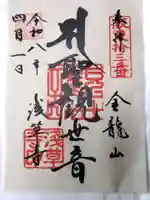 奉拝
拾三番
金龍山
聖観世音
浅草寺
令和八年
四月一日